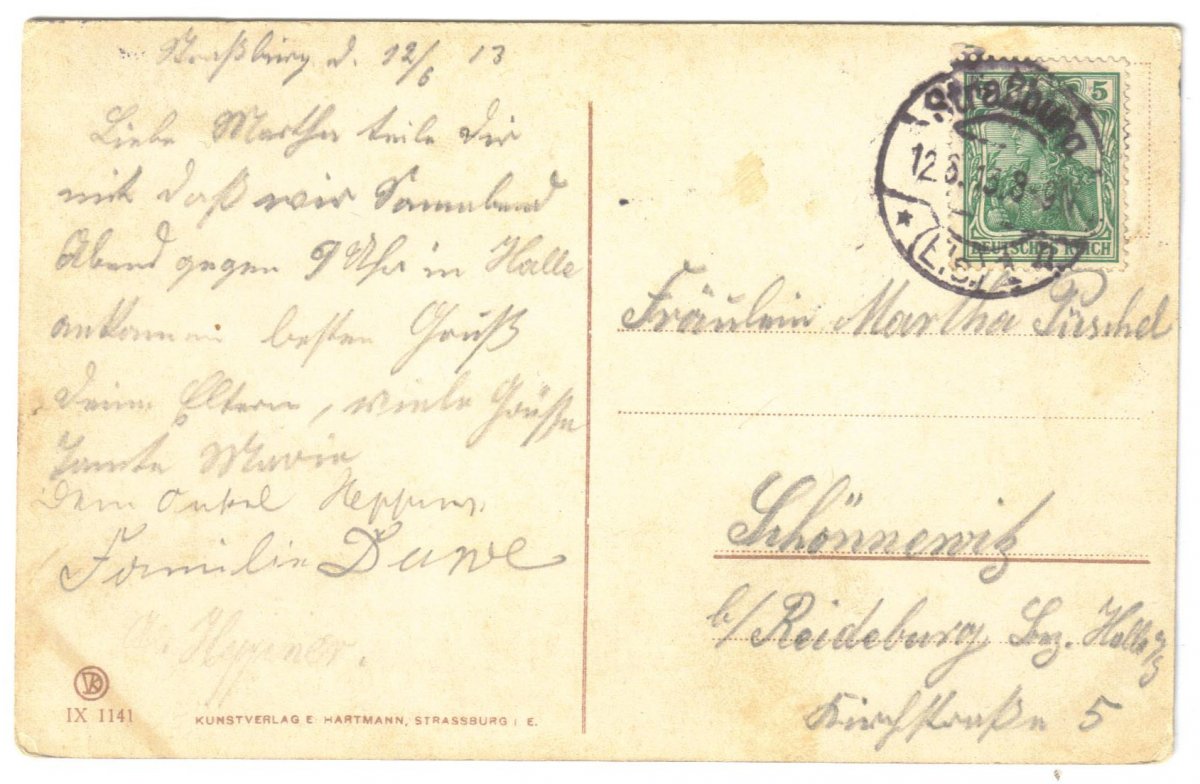 Straßburg d. 12/6 13
Liebe Martha teile Dir
mit daß wir Sonnabend
Abend gegen 9 Uhr in Halle
ankommen besten Gruß
Deine Eltern, viele Grüße
Tante Marie
dem Onkel
Familie
Straßburg
12.6.13.8-9
* (Els.)
5
DEUTSCHES REICH
Fräulein Martha Püschel
Schönnewitz
b/ Reideburg Bez. Halle a/S
Kirchstraße 5
IX 1141
KUNSTVERLAG E. HARTMANN, STRASSBURG I. E.